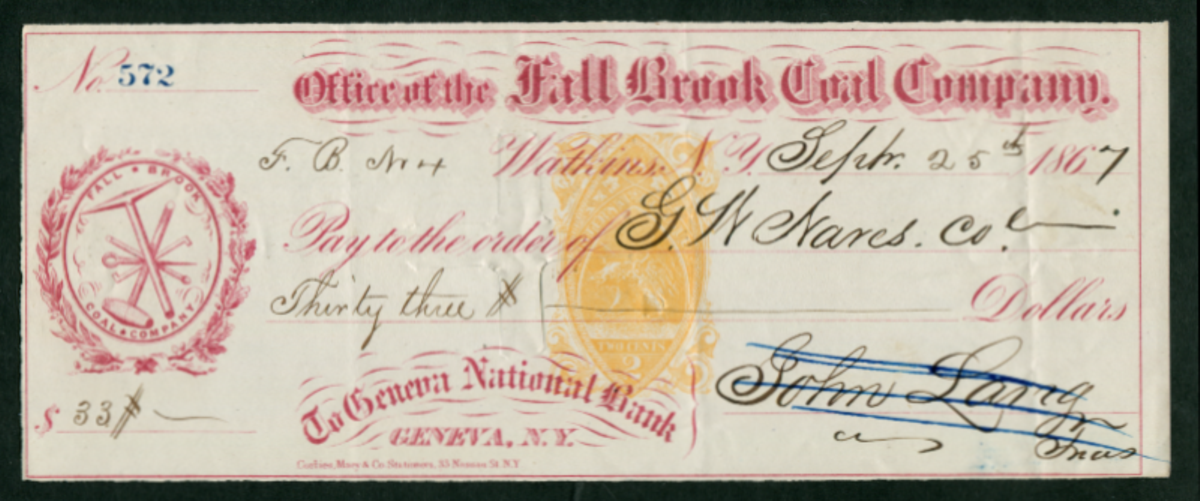 No. 572
Office of the Fall Brook Coal Company.
F. B. No 4 Watkins, N.Y. Septr. 25th 1867
FALL BROOK
COAL COMPANY
Pay to the order of G. W. Nares. Col
Thirty three $ Dollars
TWO CENTS
2
To Geneva National Bank
GENEVA, N.Y.
$ 33
John Lang
Treas
Corlies, Macy & Co. Stationers, 33 Nassau St. N.Y.